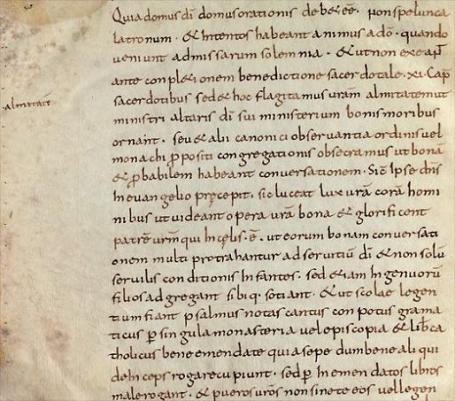 Quia domus di domus orationis debet ee. non spelunca
latronum. & intentos habeant animus ad o. quando
veniunt ad missarum solemnia. & ut non exeant
ante conpletionem benedictione sacerdotale. XI. Cap
sacerdotibus sed & hoc flagitamus uram almitatem ut
almitate
ministri altaris di suum ministerium bonis moribus
ornant. seu & alii canonici observantia ordinis vel
monachi ppositi congregationis obsecramus ut bona
& pbabilem habeant conversationem. Sic ipse dns
in evangelio precepit. sic luceat lux ura cora homi
nibus ut videant opera ura bona & glorificent
patre urm qui in celis. e. ut eorum bonam conversati
onem multi protrahantur ad servitiu di & non solu
servilis conditionis infantes. sed etiam ingenuoru
filios adgregant sibi q. sotiant. & ut scolae legen
tium fiant psalmus notas cantus conpotus grama
ticus p singula monasteria vel episcopia & lib ca
tholicus bene emendate quia sepe dum bene ali qui
dm rogare cupiunt. sed p inemendatos libros
male rogant. & pueros uros non sinete eos vel legen